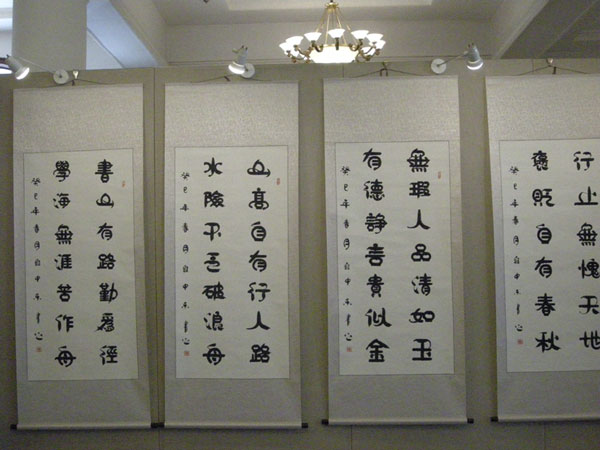 書山有路勤為徑
學海無涯苦作舟
癸巳年
山高自有行人路
水險不乏破浪舟
癸巳年
無瑕人品清如玉
有德諍言貴似金
癸巳年
行止無愧天地
褒貶自有春秋
癸巳年